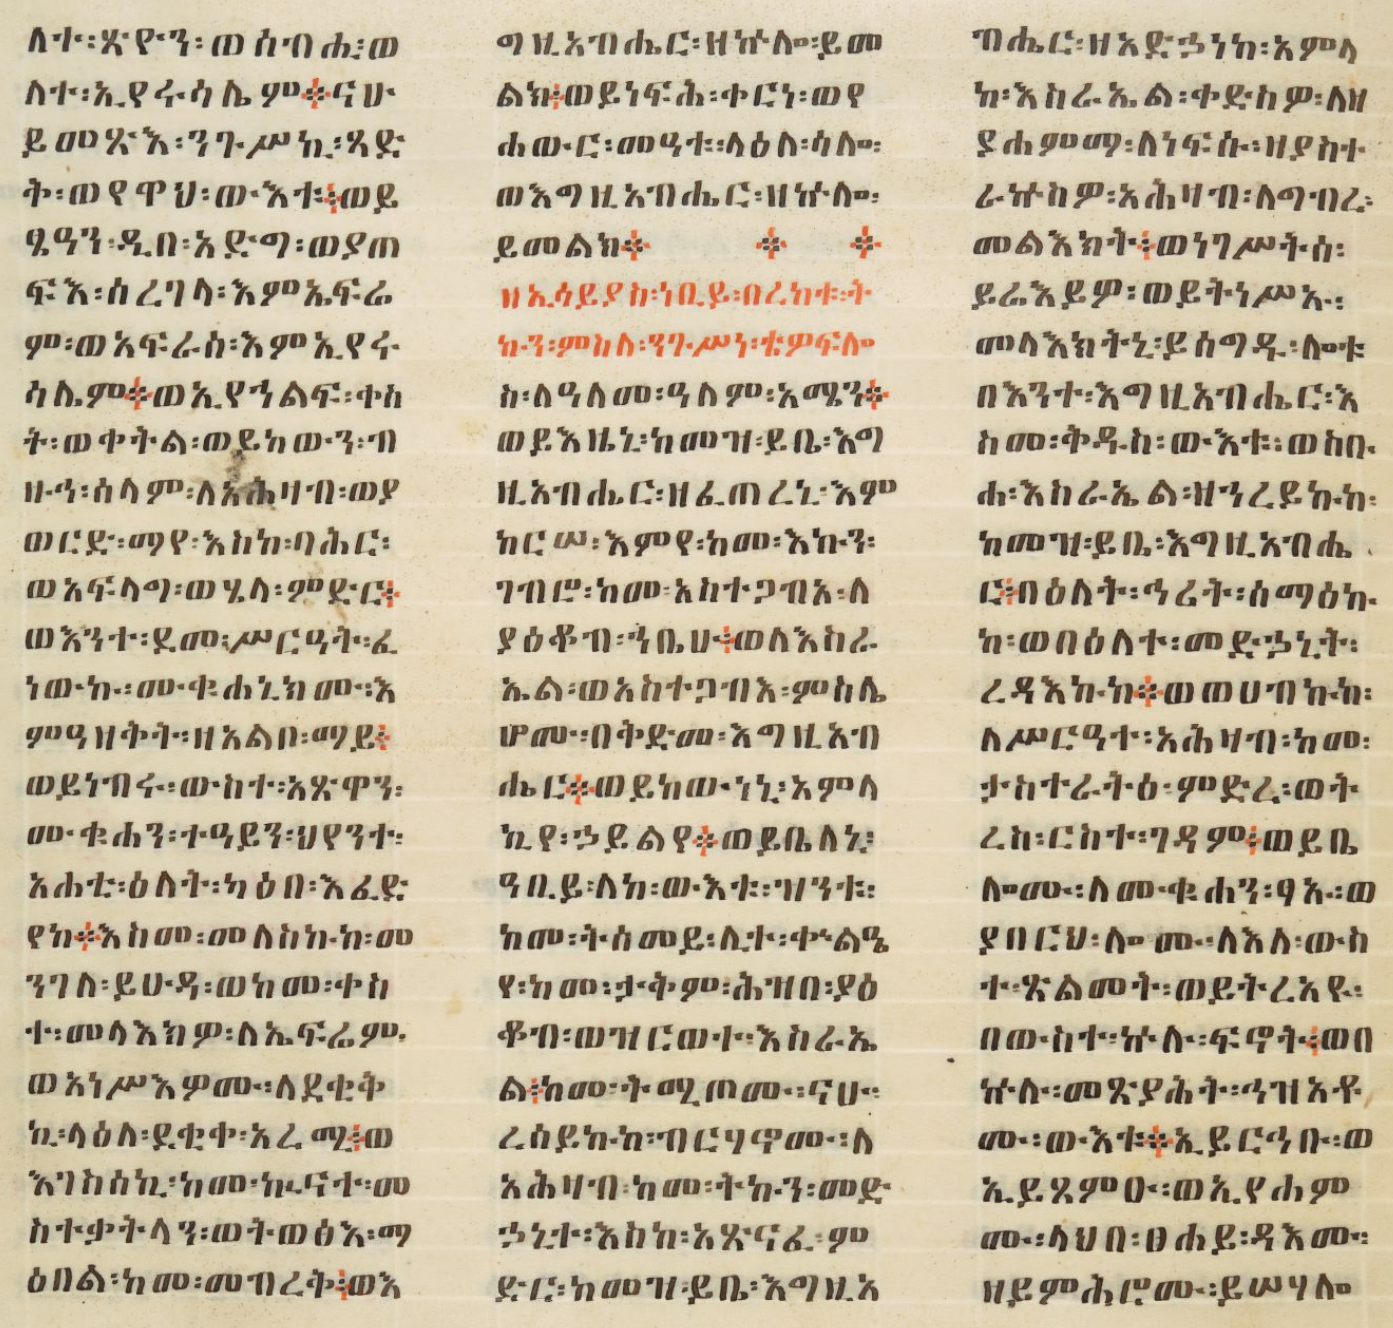 ለተ፡ጽዮን፡ወሰብሒ፡ወ
ለተ፡ኢየሩሳሌም፨ናሁ
ይመጽእ፡ንጉሥኪ፡ጻድ
ቅ፡ወየዋህ፡ውእቱ፨ወይ
ፄዓን፡ዲበ፡አድግ፡ወያጠ
ፍእ፡ሰረገላ፡እምኤፍሬ
ም፡ወአፍራስ፡እምኢየሩ
ሳሌም፨ወኢየኀልፍ፡ቀስ
ት፡ወቀትል፡ወይከውን፡ብ
ዙኅ፡ሰላም፡ለአሕዛብ፡ወያ
ወርድ፡ማየ፡እስከ፡ባሕር፡
ወአፍላግ፡ወሄላ፡ምድር፨
ወእንተ፡ደመ፡ሥርዓት፡ፈ
ነውኩ፡ሙቁሐኒክሙ፡እ
ምዓዘቅት፡ዘአልቦ፡ማይ፨
ወይነብሩ፡ውስተ፡አጽዋን፡
ሙቁሐን፡ተዓይን፡ህየንተ፡
አሐቲ፡ዕለት፡ካዕበ፡እፈድ
የከ፨እስመ፡መለስኩከ፡መ
ንገለ፡ይሁዳ፡ወከመ፡ቀስ
ተ፡መላእክዎ፡ለኤፍሬም፡
ወአነሥእዎሙ፡ለደቂቅ
ኪ፡ላዕለ፡ደቂቀ፡አረሚ፨ወ
እገስሰኪ፡ከመ፡ኩናተ፡መ
ስተቃትላን፡ወትወፅእ፡ማ
ዕበል፡ከመ፡መብረቅ፨ወእ
ግዚአብሔር፡ዘኵሎ፡ይመ
ልክ፨ወይነፍሕ፡ቀርነ፡ወየ
ሐውር፡መዓቱ፡ላዕለ፡ሳሎ፡
ወእግዚአብሔር፡ዘኵሎ፡
ይመልክ፨ ፨ ፨
ዘኢሳይያስ፡ነቢይ፡በረከቱ፡ት
ኩን፡ምስለ፡ንጉሥነ፡ቴዎፍሎ
ስ፡ለዓለመ፡ዓለም፡አሜን፨
ወይእዜኒ፡ከመዝ፡ይቤ፡እግ
ዚአብሔር፡ዘፈጠረኒ፡እም
ከርሠ፡እምየ፡ከመ፡እኩን፡
ገብሮ፡ከመ፡አስተጋብአ፡ለ
ያዕቆብ፡ኀቤሁ፨ወለእስራ
ኤል፡ወአስተጋብእ፡ምስሌ
ሆሙ፡በቅድመ፡እግዚአብ
ሔር፨ወይከውነኒ፡አምላ
ኪየ፡ኃይልየ፨ወይቤለኒ፡
ዓቢይ፡ለከ፡ውእቱ፡ዝንቱ፡
ከመ፡ትሰመይ፡ሊተ፡ቀኍልዔ
የ፡ከመ፡ታቅም፡ሕዝበ፡ያዕ
ቆብ፡ወዝርወተ፡እስራኤ
ል፨ከመ፡ትሚጦሙ፡ናሁ፡
ረሰይኩከ፡ብርሃኖሙ፡ለ
አሕዛብ፡ከመ፡ትኩን፡መድ
ኃኒተ፡እስከ፡አጽናፈ፡ም
ድር፡ከመዝ፡ይቤ፡እግዚአ
ብሔር፡ዘአድኃነከ፡አምላ
ከ፡እስራኤል፡ቀድስዎ፡ለዘ
ያሐምማ፡ለነፍሱ፡ዘያስተ
ራኵስዎ፡አሕዛብ፡ለግብረ፡
መልእክት፨ወነገሥትሰ፡
ይሬእይዎ፡ወይትነሥኡ፡
መላእክትኒ፡ይሰግዱ፡ሎቱ
በእንተ፡እግዚአብሔር፡እ
ስመ፡ቅዱስ፡ውእቱ፡ወስቡ
ሐ፡እስራኤል፡ዘኀረይኩከ፡
ከመዝ፡ይቤ፡እግዚአብሔ
ር፨በዕለት፡ኅሪት፡ሰማዕኩ
ከ፡ወበዕለተ፡መድኃኒት፡
ረዳእኩከ፨ወወሀብኩከ፡
ለሥርዓተ፡አሕዛብ፡ከመ፡
ታስተራትዕ፡ምድረ፡ወት
ረስ፡ርስተ፡ገዳም፨ወይቤ
ሎሙ፡ለሙቁሐን፡ፃኡ፡ወ
ያበርህ፡ሎሙ፡ለእለ፡ውስ
ተ፡ጽልመት፡ወይትረአዩ፡
በውስተ፡ኵሉ፡ፍኖት፨ወበ
ኵሉ፡መጽያሕት፡ኀዝአቶ
ሙ፡ውእቱ፨ኢይርኅቡ፡ወ
ኢይጸምዑ፡ወኢየሐም
ሙ፡ላህበ፡ፀሐይ፡ዳእሙ፡
ዘይምሕሮሙ፡ይሠሃሎ